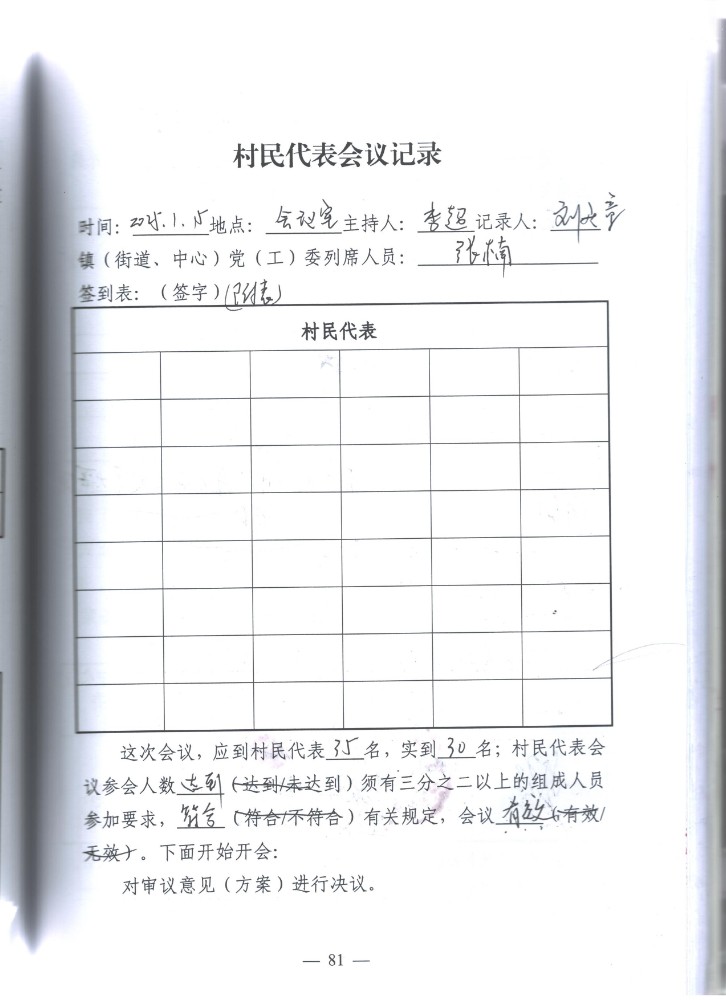 村民代表会议记录
时间：2025.1.15地点：会议室主持人：李超记录人：刘文章
镇（街道、中心）党（工）委列席人员：张楠
签到表：（签字）(附表)
村民代表
这次会议，应到村民代表35名，实到30名；村民代表会
议参会人数达到（达到/未达到）须有三分之二以上的组成人员
参加要求，符合（符合/不符合）有关规定，会议有效（有效/
无效）。下面开始开会：
对审议意见（方案）进行决议。
— 81 —